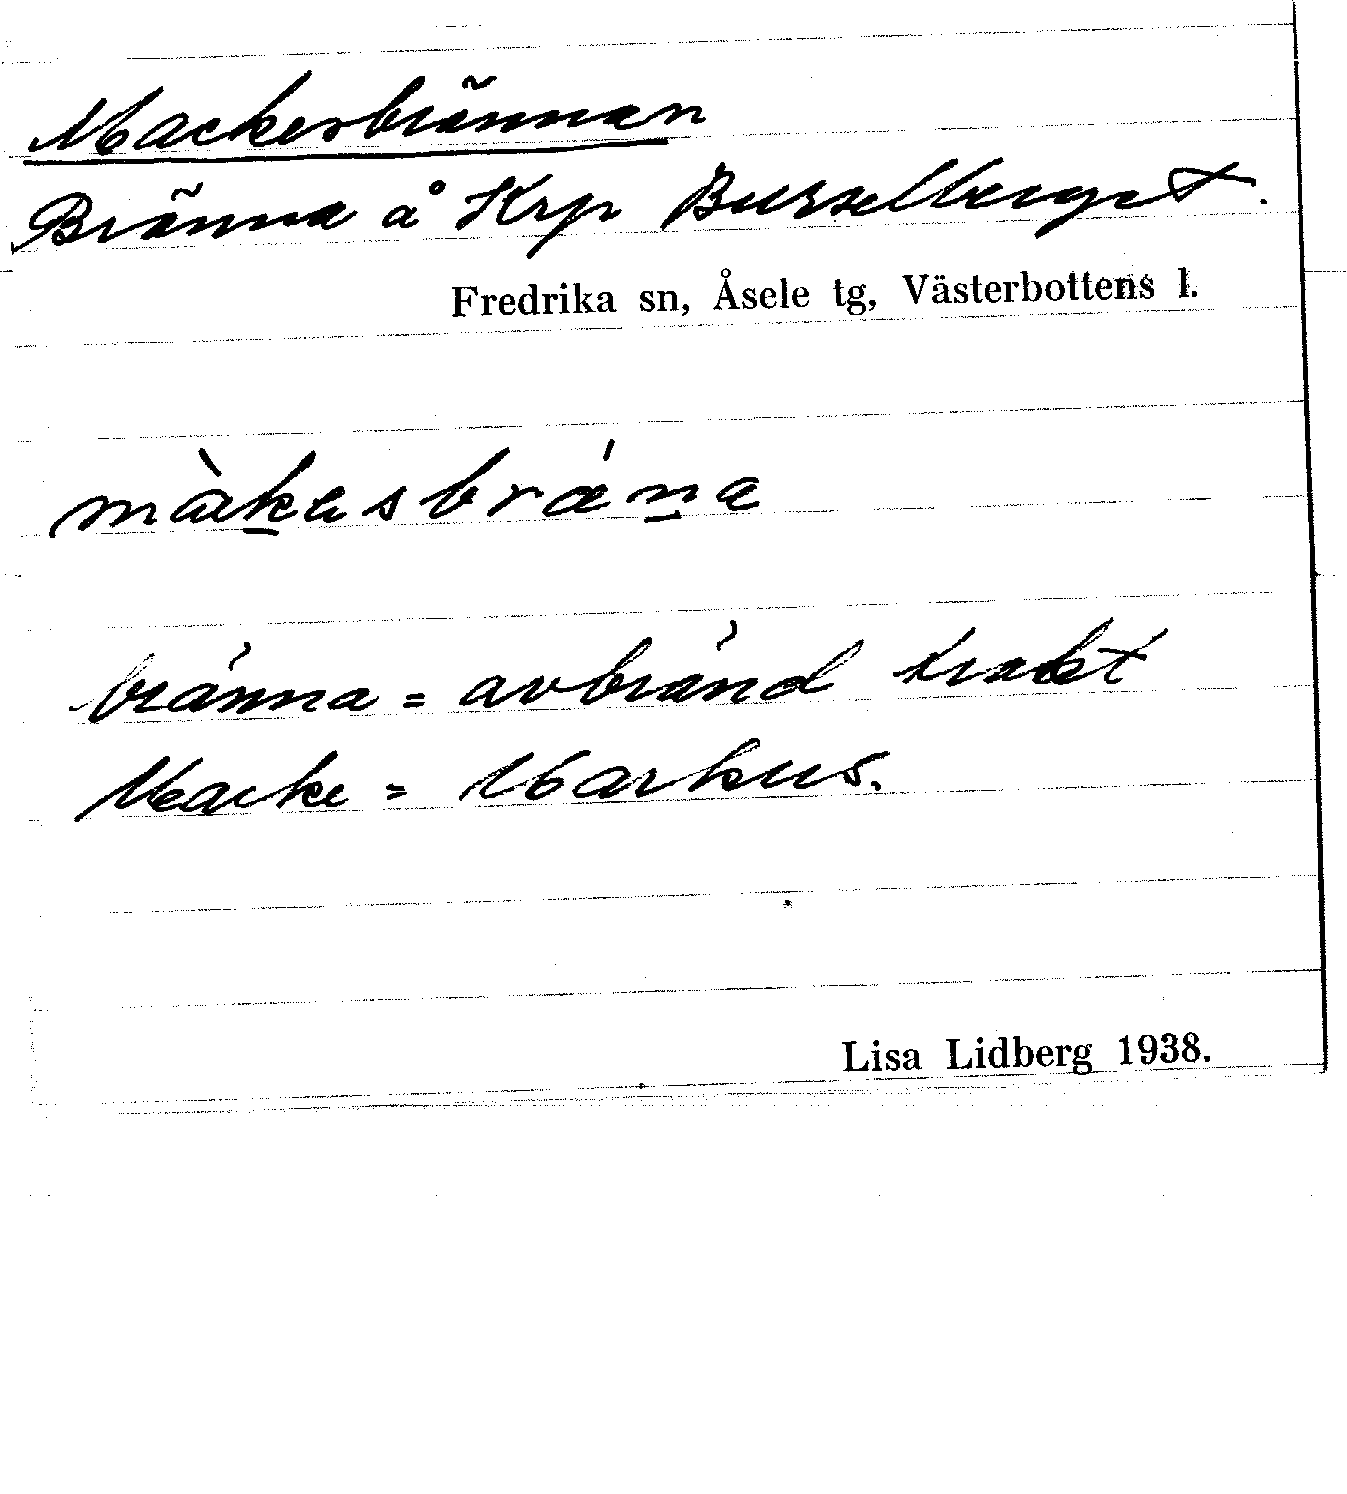 Mackesbrännan
Bränna å Krp Bursselberget.
Fredrika sn, Åsele tg, Västerbottens l.
màkasbrána
bränna = avbränd trakt
Macke = Markus.
Lisa Lidberg 1938.